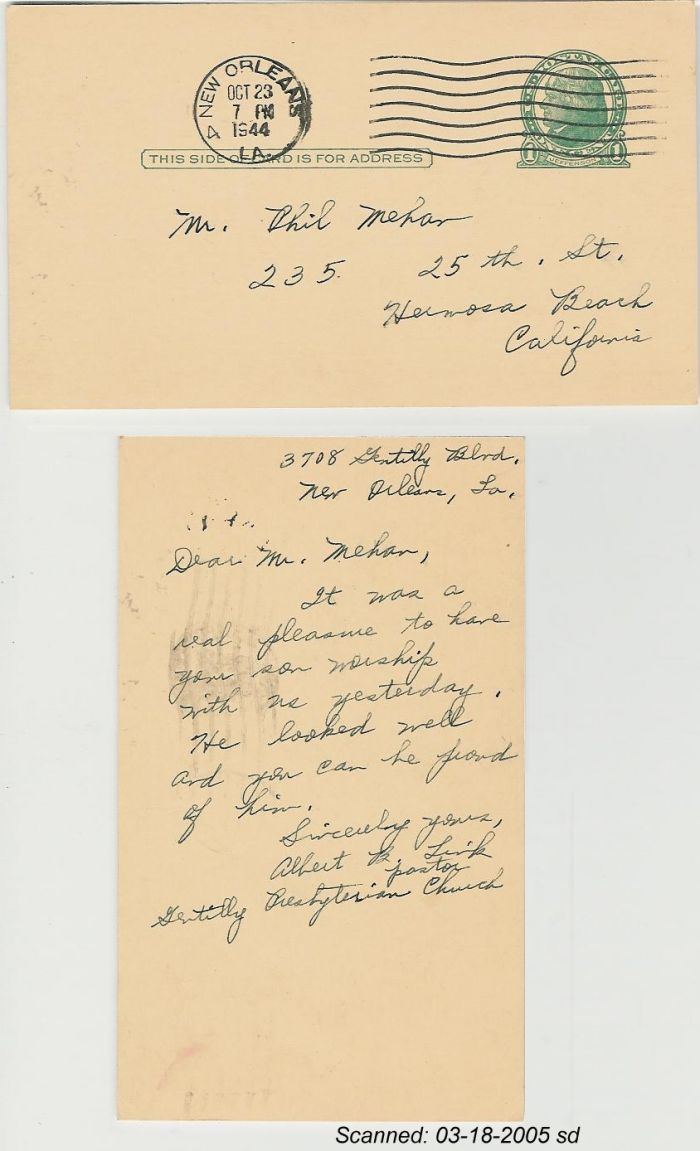 NEW ORLEANS
OCT 23
7 PM
1944
LA.
4
THIS SIDE OF CARD IS FOR ADDRESS
1 JEFFERSON 1
Mr. Phil Mehan
235 25 th. St.
Hermosa Beach
California
3708 Gentilly Blvd.
New Orleans, La.
Dear Mr. Mehan,
It was a
real pleasure to have
your son worship
with us yesterday.
He looked well
and you can be proud
of him.
Sincerely yours,
Albert B. Link
pastor
Gentilly Presbyterian Church
Scanned: 03-18-2005 sd